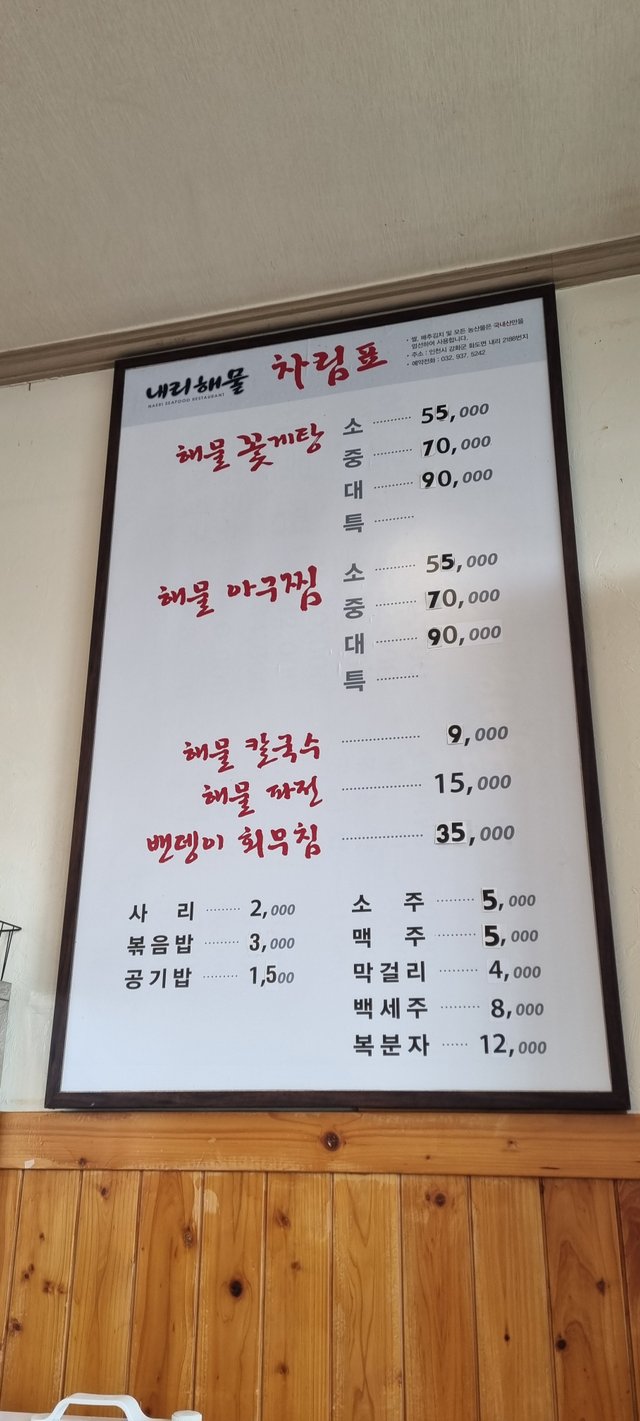 내리해물
NAERI SEAFOOD RESTAURANT
차림표
• 쌀, 배추김치 및 모든 농산물은 국내산만을
엄선하여 사용합니다.
• 주소 : 인천시 강화군 화도면 내리 2186번지
• 예약전화 : 032. 937. 5242
해물 꽃게탕
소 ·········· 55,000
중 ·········· 70,000
대 ·········· 90,000
특 ··········
해물 아구찜
소 ·········· 55,000
중 ·········· 70,000
대 ·········· 90,000
특 ··········
해물 칼국수 ·········· 9,000
해물 파전 ·········· 15,000
밴뎅이 회무침 ·········· 35,000
사 리 ········ 2,000
볶음밥 ········ 3,000
공기밥 ········ 1,500
소 주 ········ 5,000
맥 주 ········ 5,000
막걸리 ········ 4,000
백세주 ········ 8,000
복분자 ······ 12,000